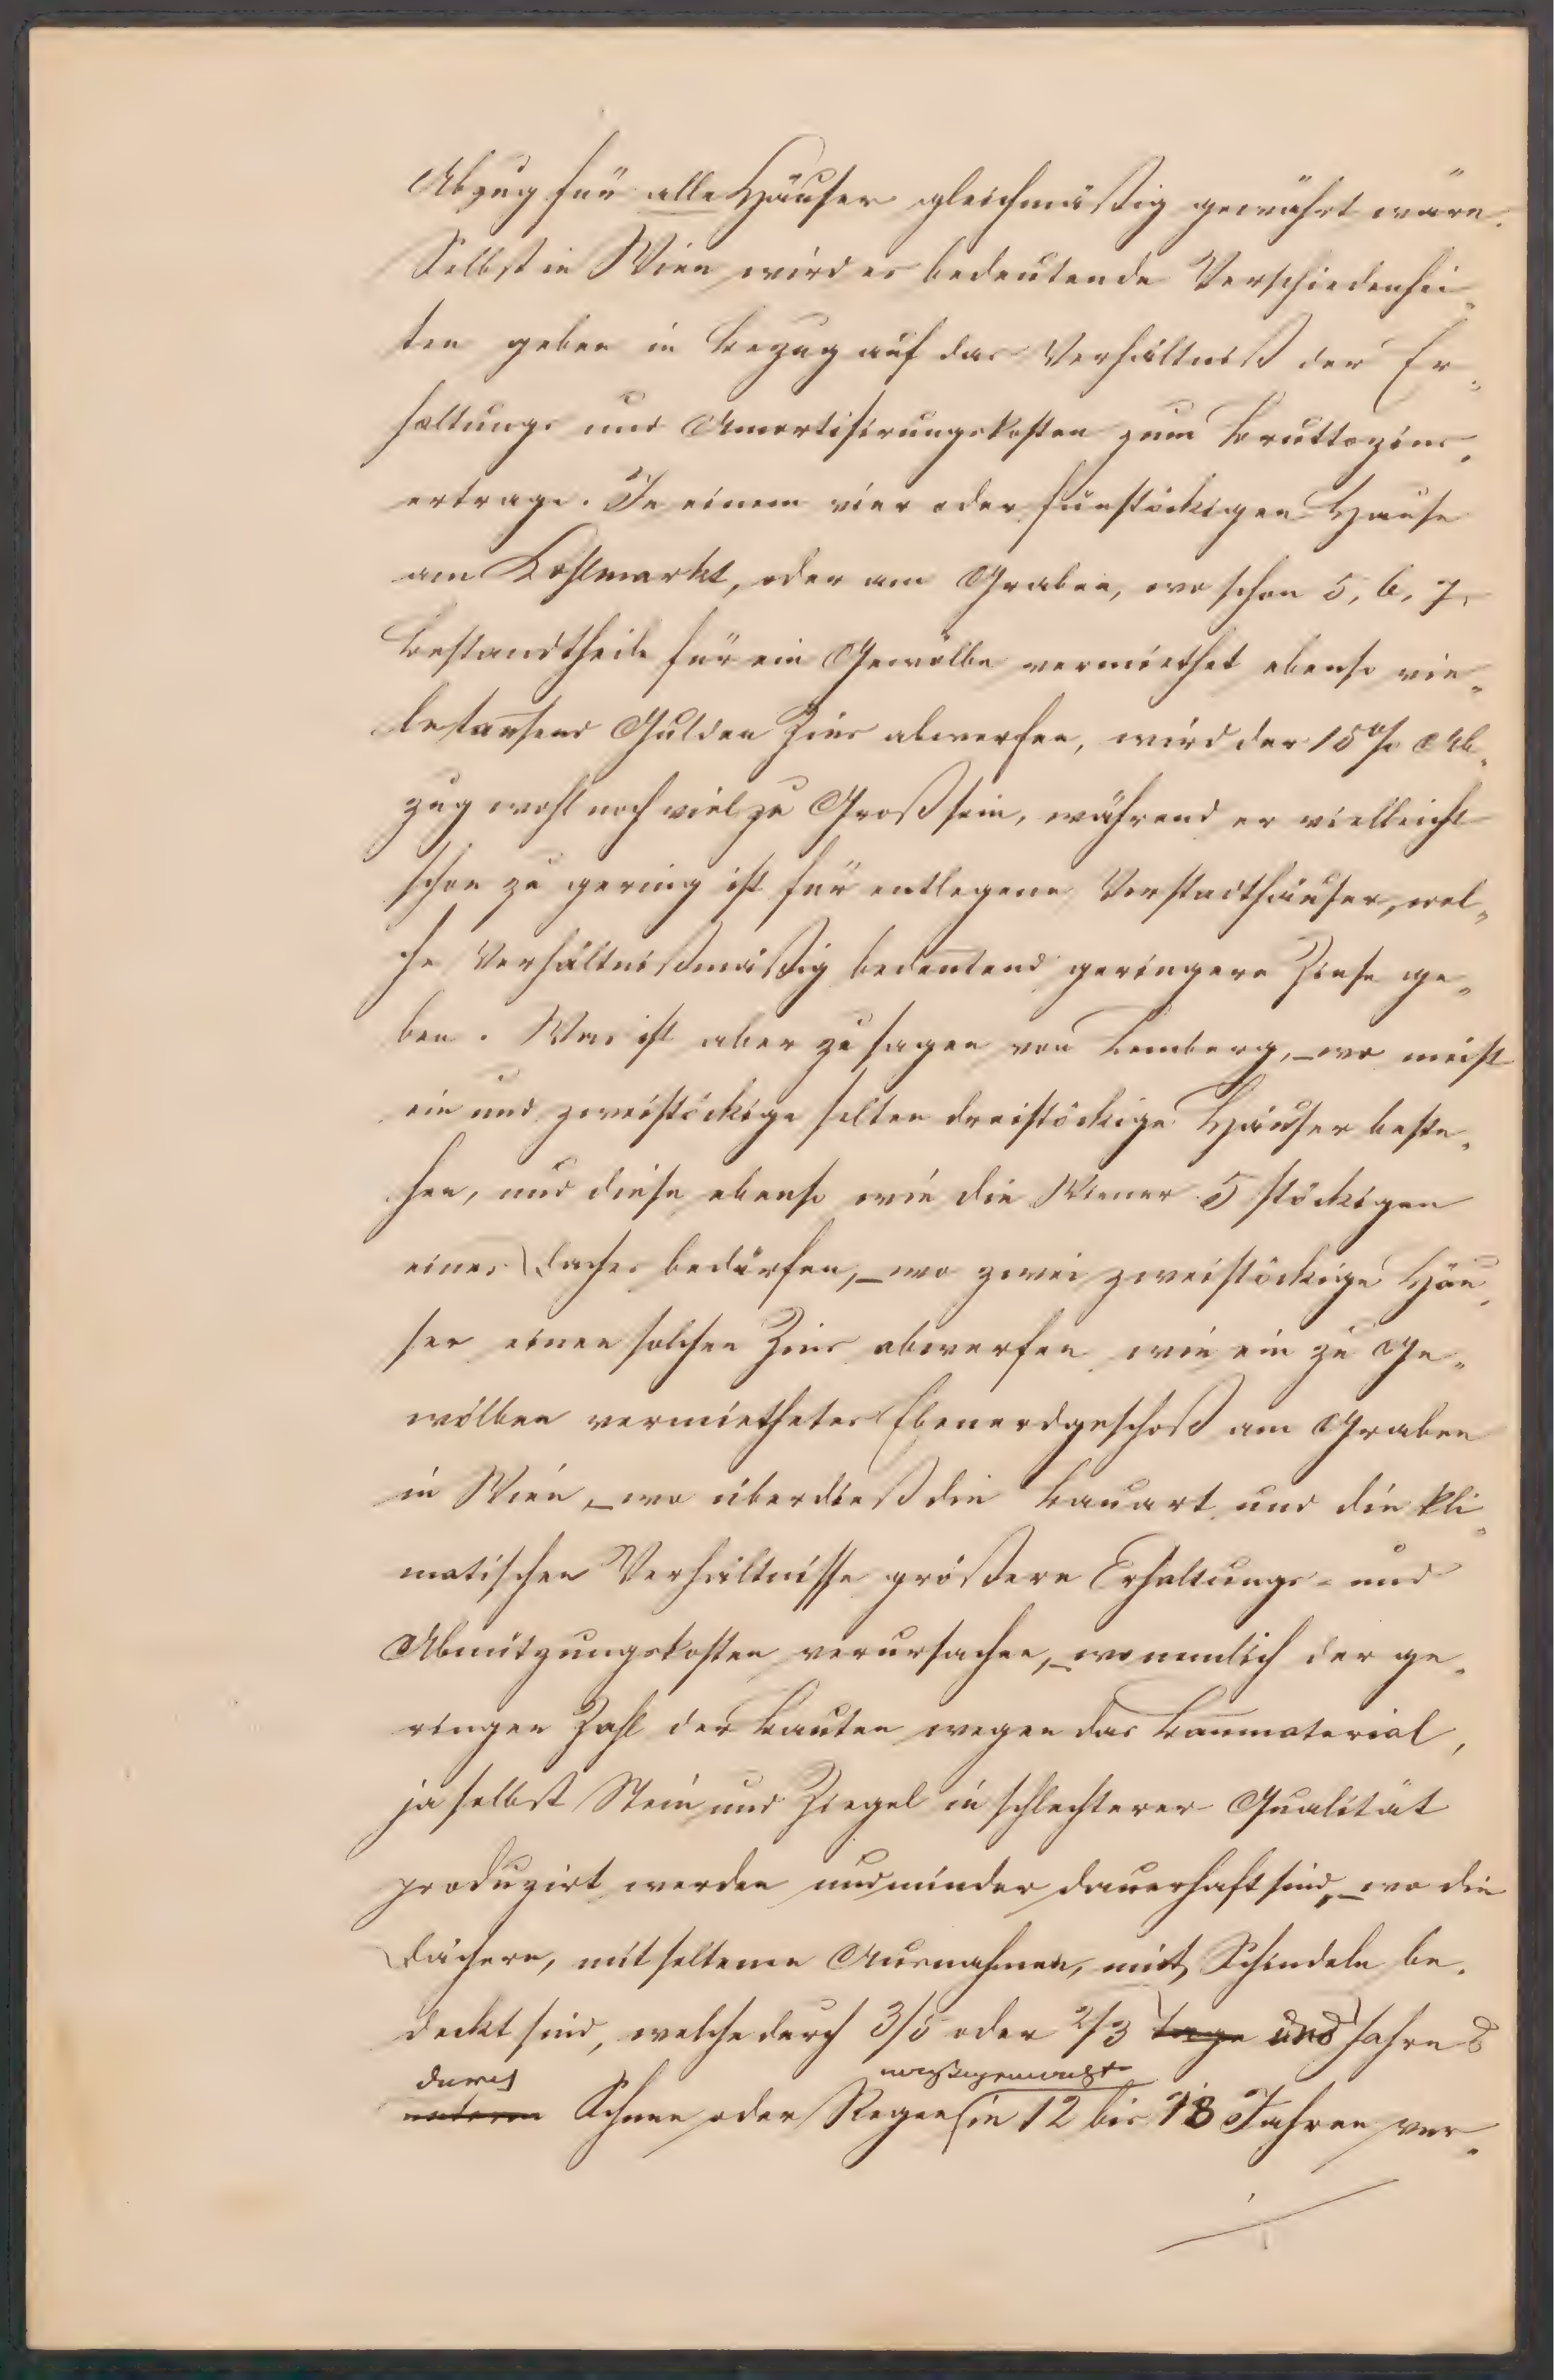 Abzug für alle Häuser gleichmäßig gewährt wäre.
Selbst in Wien wird es bedeutende Verschiedenhei„
ten geben in Bezug auf das Verhältniß der Er„
haltungs und Amortisirungskosten zum Bruttozins„
ertrage. In einem vier oder fünfstöckigen Hause
am Kohlmarkt, oder am Graben, wo schon 5, 6, 7,
Bestandtheile für ein Gewölbe vermiethet ebenso vie„
letausend Gulden Zins abwerfen, wird der 15% Ab„
zug wohl noch viel zu Groß sein, während er vielleicht
schon zu gering ist für entlegene Vorstadthäuser, wel„
che Verhältnißmäßig bedeutend geringere Zinse ge„
ben. Was ist aber zu sagen von Lemberg, – wo meist
ein und zweistöckige selten dreistöckige Häuser beste„
hen, und diese ebenso wie die Wiener 5 stöckigen
eines Daches bedürfen, – wo zwei zweistöckige Häu„
ser einen solchen Zins abwerfen wie ein zu Ge„
wölben vermiethetes Ebenerdgeschoß am Graben
in Wien, – wo überdieß die Bauart und die kli„
matischen Verhältnisse größere Erhaltungs- und
Abnützungskosten verursachen, – wo nemlich der ge„
ringen Zahl der Bauten wegen das Baumaterial,
ja selbst Stein und Ziegel in schlechterer Qualität
produzirt werden und minder dauerhaft sind, – wo die
Dächern, mit seltenen Ausnahmen, mit Schindeln be„
deckt sind, welche durch 3/5 oder 2/3 Tage und Jahres
durch
unterm Schnee oder Regen in 12 bis 18 Jahren ver„